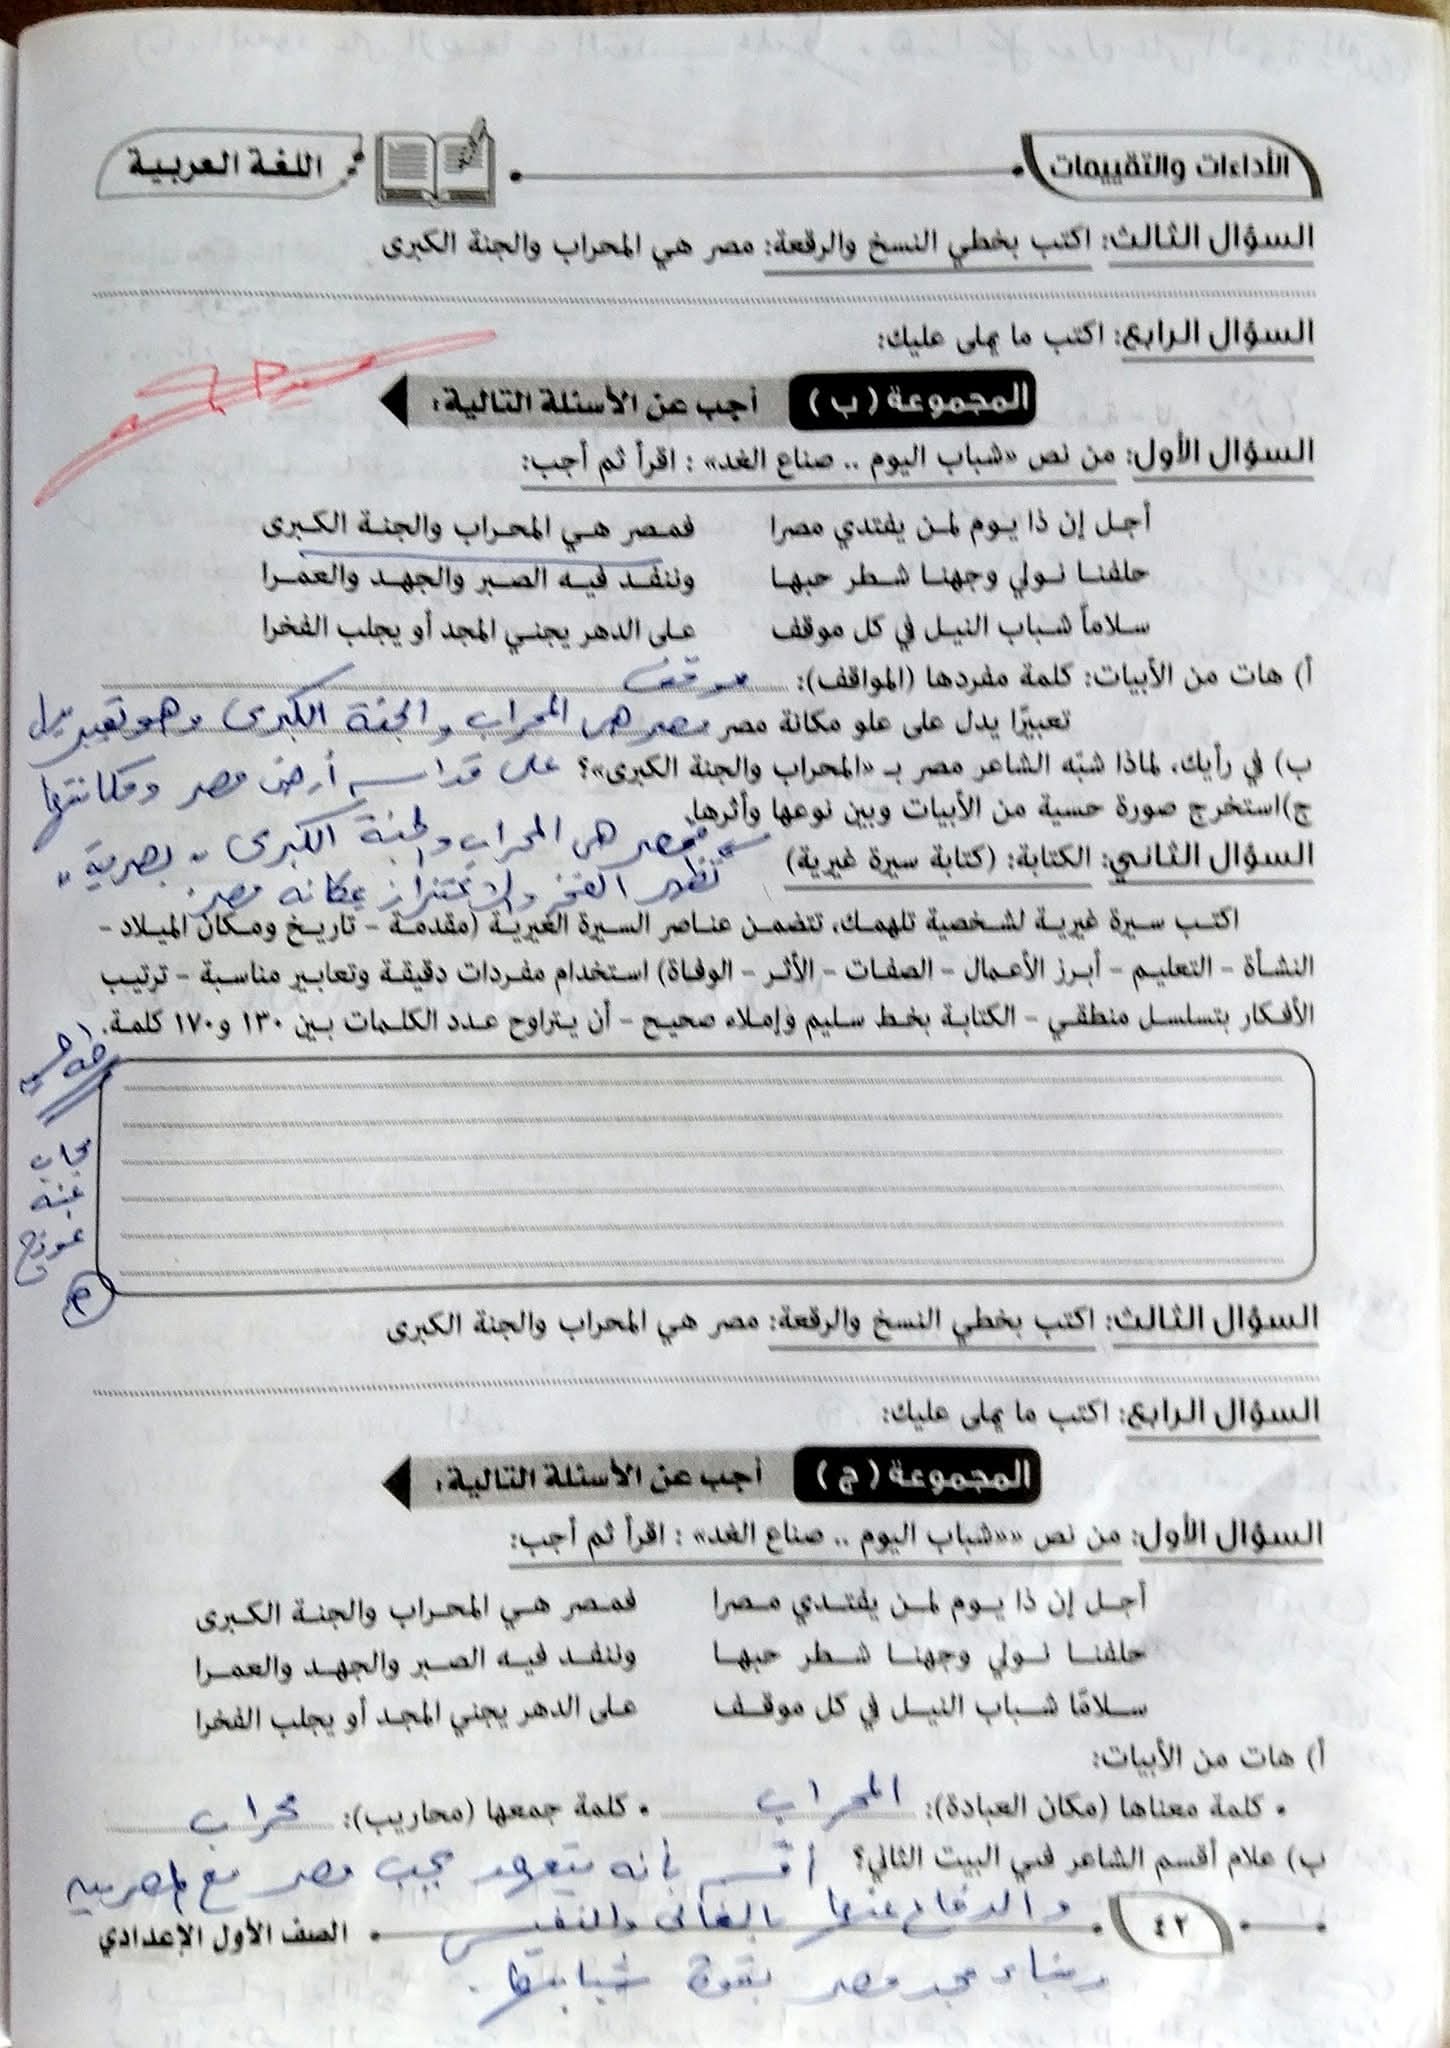 الأداءات والتقييمات
اللغة العربية
السؤال الثالث: اكتب بخطي النسخ والرقعة: مصر هي المحراب والجنة الكبرى
السؤال الرابع: اكتب ما يملى عليك:
المجموعة (ب) أجب عن الأسئلة التالية:
السؤال الأول: من نص «شباب اليوم .. صناع الغد» : اقرأ ثم أجب:
أجل إن ذا يوم لمن يفتدي مصرا فمصر هي المحراب والجنة الكبرى
حلفنا نولي وجهنا شطر حبها وننفد فيه الصبر والجهد والعمرا
سلاماً شباب النيل في كل موقف على الدهر يجني المجد أو يجلب الفخرا
أ) هات من الأبيات: كلمة مفردها (المواقف): موقف
تعبيرًا يدل على علو مكانة مصر مصر هى المحراب والجنة الكبرى وهو تعبير يدل
ب) في رأيك، لماذا شبّه الشاعر مصر بـ «المحراب والجنة الكبرى»؟ على قداسة أرض مصر ومكانتها
ج)استخرج صورة حسية من الأبيات وبين نوعها وأثرها.
فمصر هى المحراب والجنة الكبرى " بصرية "
السؤال الثاني: الكتابة: (كتابة سيرة غيرية)
تظهر الفخر والاعتزاز بمكانة مصر
اكتب سيرة غيرية لشخصية تلهمك، تتضمن عناصر السيرة الغيرية (مقدمة - تاريخ ومكان الميلاد -
النشأة - التعليم - أبرز الأعمال - الصفات - الأثر - الوفاة) استخدام مفردات دقيقة وتعابير مناسبة - ترتيب
الأفكار بتسلسل منطقي - الكتابة بخط سليم وإملاء صحيح - أن يتراوح عدد الكلمات بين ١٣٠ و١٧٠ كلمة.
مجاب
عنه
نموذج
السؤال الثالث: اكتب بخطي النسخ والرقعة: مصر هي المحراب والجنة الكبرى
السؤال الرابع: اكتب ما يملى عليك:
المجموعة (ج) أجب عن الأسئلة التالية:
السؤال الأول: من نص ««شباب اليوم .. صناع الغد» : اقرأ ثم أجب:
أجل إن ذا يوم لمن يفتدي مصرا فمصر هي المحراب والجنة الكبرى
حلفنا نولي وجهنا شطر حبها وننفد فيه الصبر والجهد والعمرا
سلامًا شباب النيل في كل موقف على الدهر يجني المجد أو يجلب الفخرا
أ) هات من الأبيات:
• كلمة معناها (مكان العبادة): المحراب • كلمة جمعها (محاريب): محراب
ب) علام أقسم الشاعر في البيت الثاني؟ أقسم بأنه يتعهد بحب مصر مع المصريين
والدفاع عنها بالغالى والنفيس
٤٢
الصف الأول الإعدادي
وبناء مجد مصر بقوة شبابها.